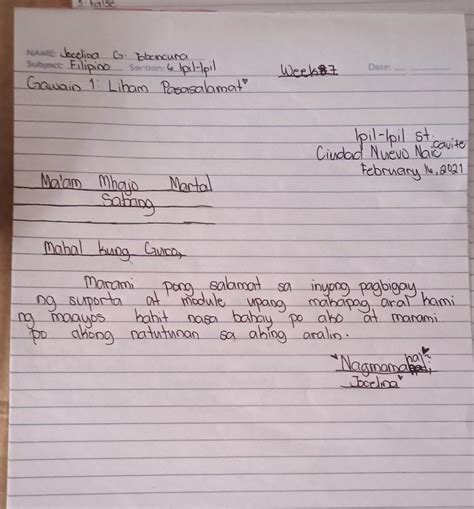 5. False
NAME: Jocelina G. Ibancura
Subject: Filipino Section: 6 Ipil-Ipil Week 7 Date:
Gawain 1: Liham Pasasalamat
Ipil-Ipil st.
Ciudad Nuevo Naic Cavite
February 16, 2021
Ma'am Mhajo Martal
Sabang
Mahal kung Guro,
Marami pong salamat sa inyong pagbigay
ng suporta at module upang makapag aral kami
ng maayos kahit nasa bahay po ako at marami
po akong natutunan sa aking aralin.
"Nagmamahal,
Jocelina"